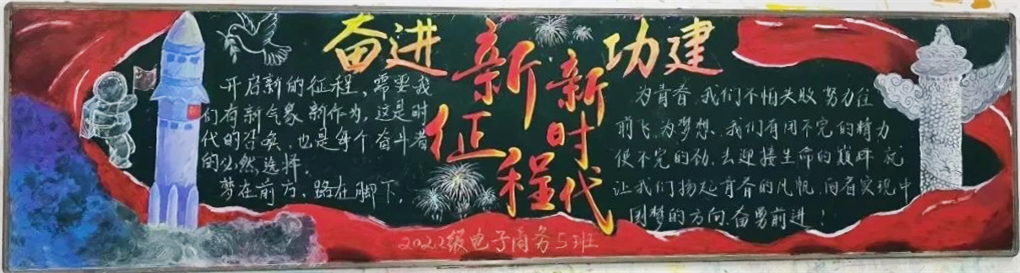 奋进
新征程
功建
新时代
开启新的征程，需要我
们有新气象新作为，这是时
代的召唤，也是每个奋斗者
的必然选择。
梦在前方，路在脚下。
为青春，我们不怕失败努力往
前飞，为梦想，我们有用不完的精力
使不完的劲，去迎接生命的巅峰就
让我们扬起青春的风帆，向着实现中
国梦的方向奋勇前进！
2022级电子商务5班